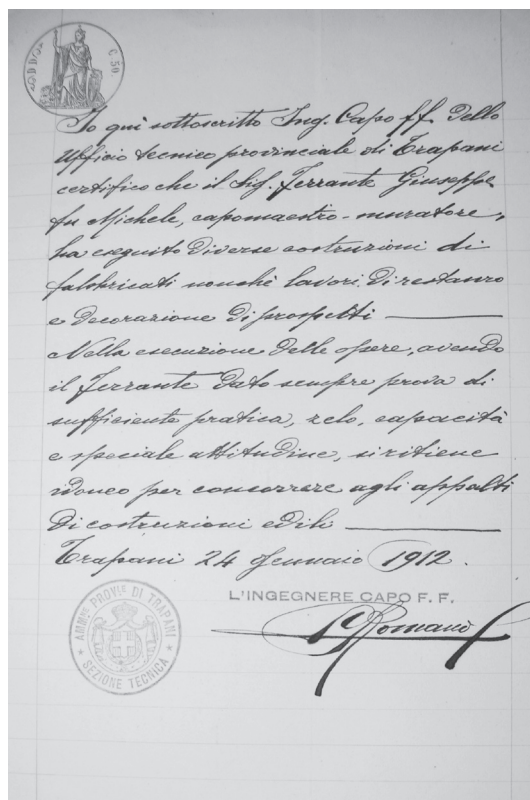 C. 50
Io qui sottoscritto Ing. Capo ff. dello
Ufficio tecnico provinciale di Trapani
certifico che il Sig. Ferrante Giuseppe
fu Michele, capomaestro-muratore,
ha eseguito diverse costruzioni di
fabbricati nonchè lavori di restauro
e decorazione di prospetti
Nella esecuzione delle opere, avendo
il Ferrante dato sempre prova di
sufficiente pratica, zelo, capacità
e speciale attitudine, si ritiene
idoneo per concorrere agli appalti
di costruzioni edili
Trapani 24 Gennaio 1912.
L'INGEGNERE CAPO F. F.
Romano
AMM.NE PROV.LE DI TRAPANI
* SEZIONE TECNICA *